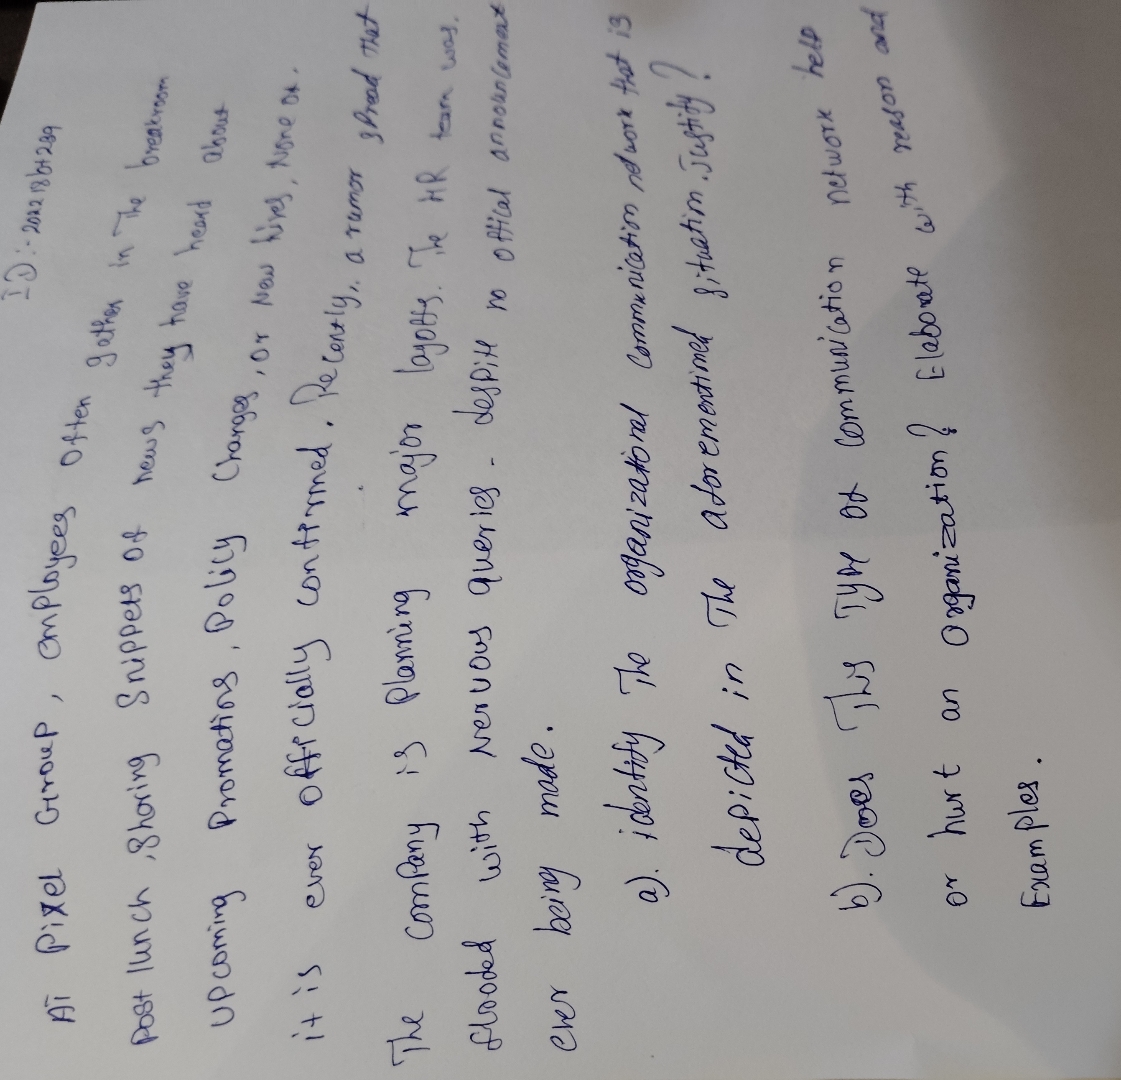 ID:- 2022186+289
At Pixel Group, employees often gather in The breakroom
post lunch, Sharing Snippets of news they have heard about
Upcoming Promations, Policy Changes, or New hires, None of.
it is ever officially confirmed. Recently, a rumor spread that
The company is planning major layoffs. The HR team was.
flooded with nervous queries - despite no offical announcement
ever being made.
a). identify The organizational communication network that is
depicted in The aforementimed situation. Justify?
b). Does This Type of communication network help
or hurt an Organization? Elaborate with reason and
Examples.